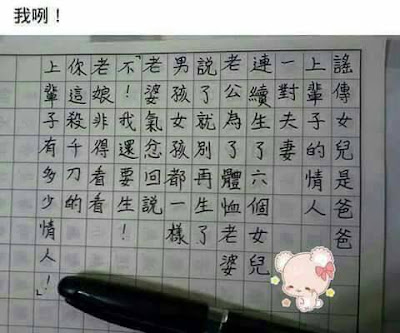 我咧!
謠傳女兒是爸爸
上輩子的情人
一對夫妻
連續生了六個女兒
老公為了體恤老婆
說了就別再生了
男孩女孩都一樣
老婆氣忿回說
「不!我還要生!
老娘非得看看
你這殺千刀的
上輩子有多少情人!」